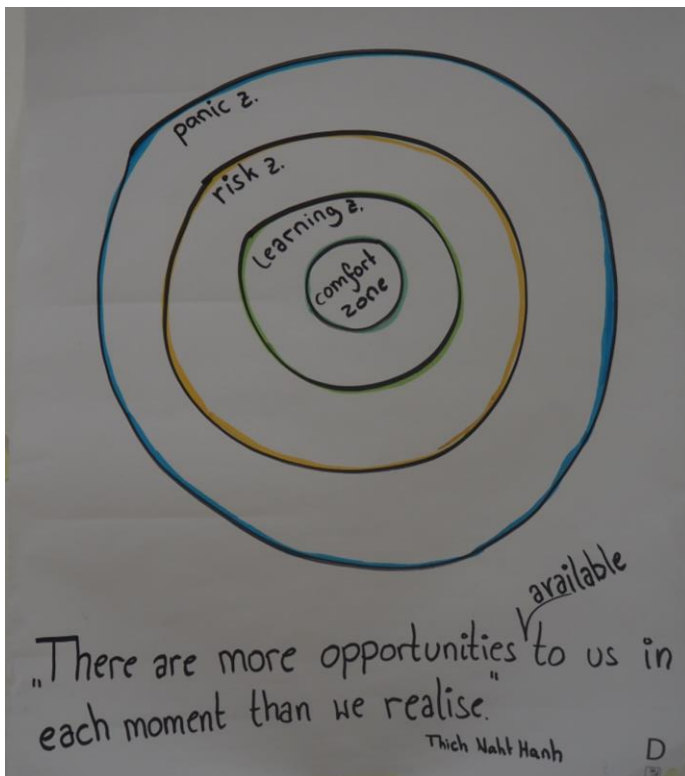 panic z.
risk z.
learning z.
comfort
zone
available
„There are more opportunities to us in
each moment than we realise."
Thich Naht Hanh
D